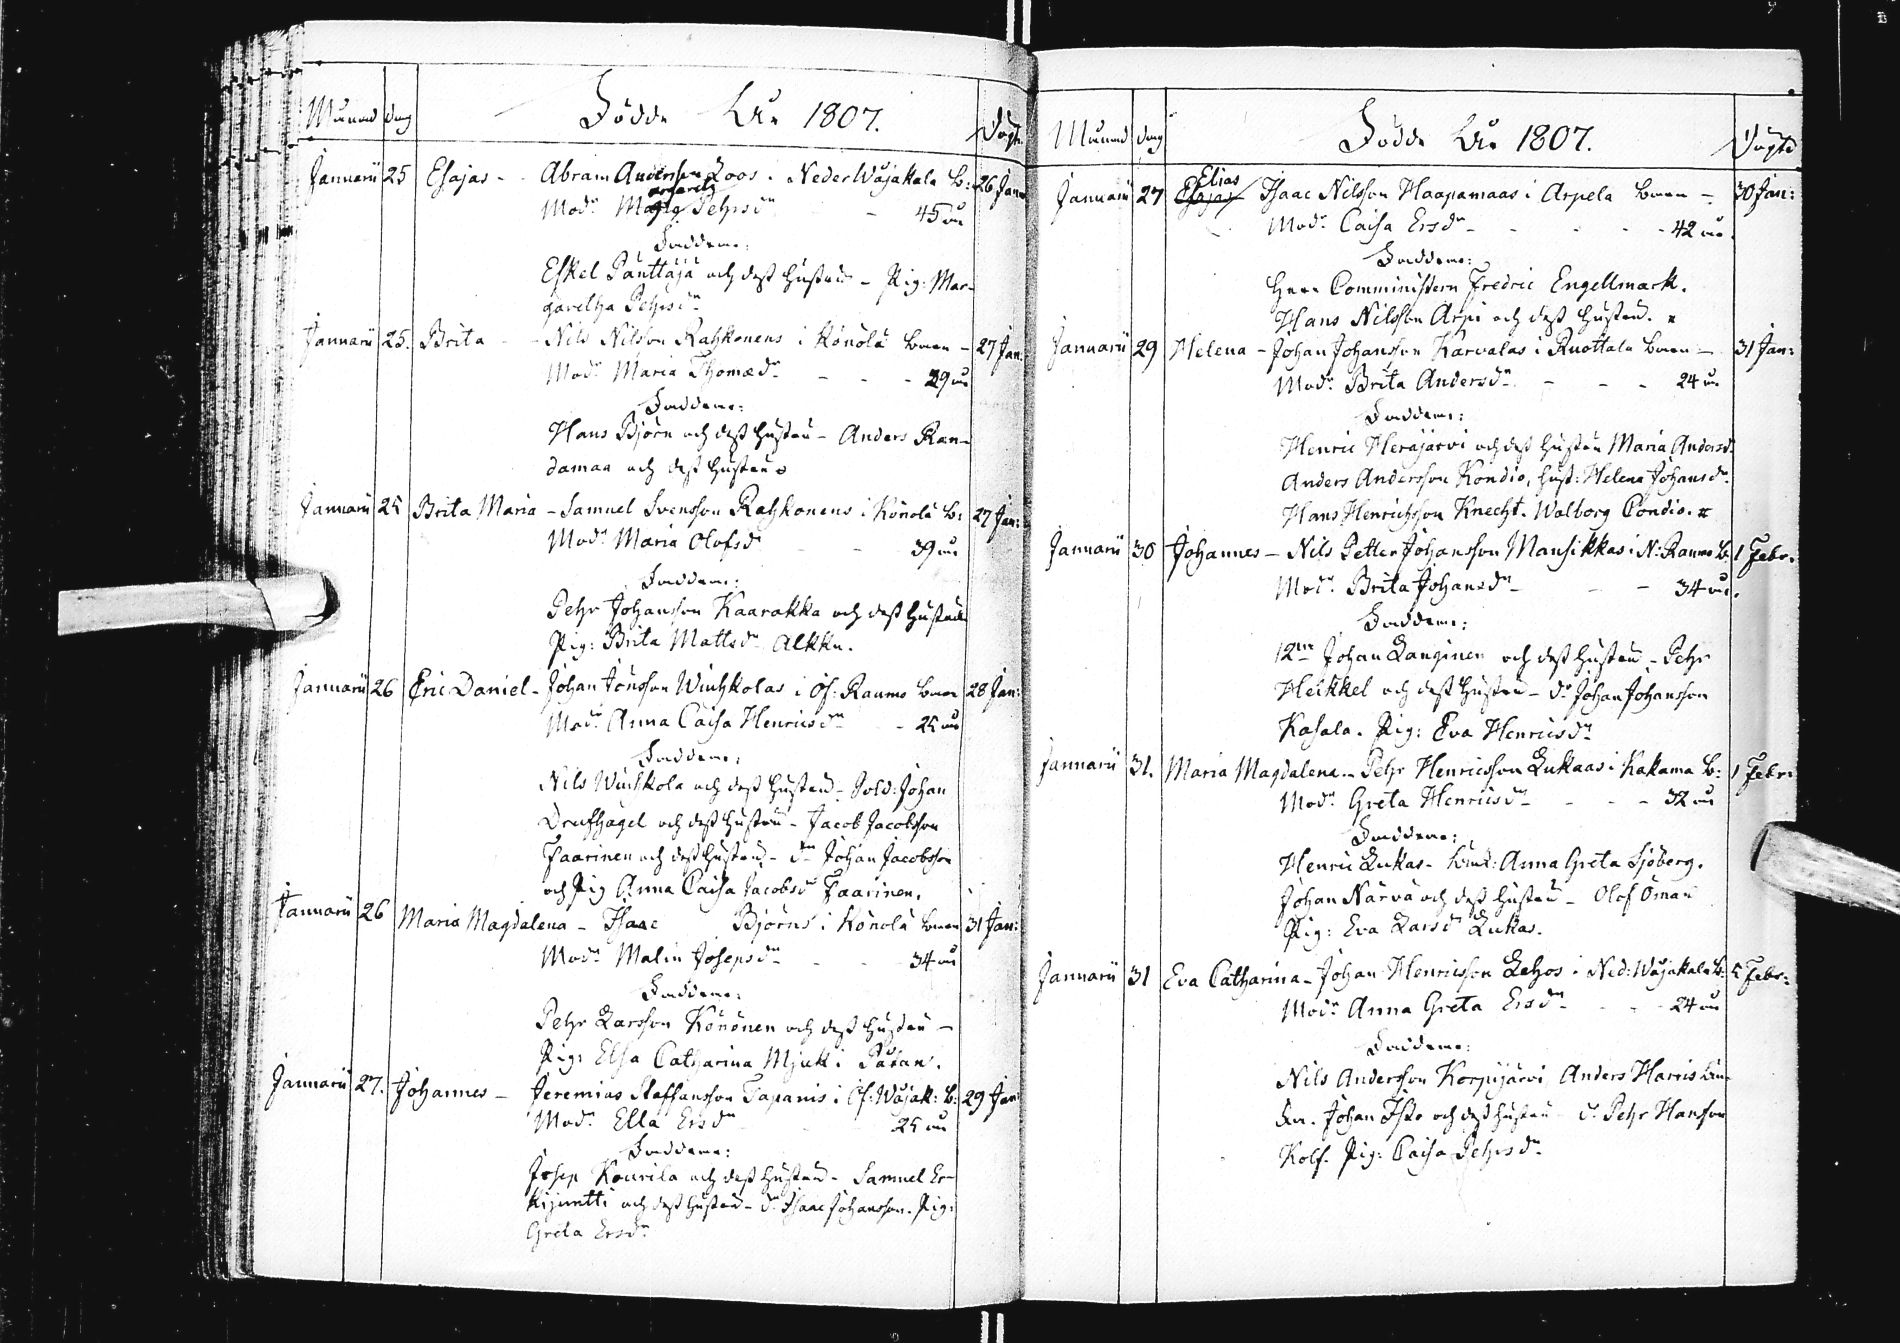 Månad dag Födde År 1807. Döpte
Januarii 25 Esajas - Abram Andersson Loos. Neder Wojakala b: 26 Jan:
Modn Margaretha Pehrsdn - 45 år
Faddrar:
Eskel Panttaja och dess hustru - Pig: Mar-
garetha Pehrsdn
Januarii 25. Brita - Nils Nilsson Rahkonens i Könölä been - 27 Jan:
Modn Maria Thomædn - 29 år
Faddrar:
Hans Björn och dess hustru - Anders Ran-
damaa och dess hustru
Januarii 25 Brita Maria - Samuel Svensson Rahkonens i Könolä b: 27 Jan:
Modn Maria Olofsdn - 39 år
Faddrar:
Pehr Johansson Kaarakka och dess hustru
Pig: Brita Mattsdn Alkku.
Januarii 26 Eric Daniel - Johan Jönsson Winhkolas i Öf: Raumo been 28 Jan:
Modn Anna Caisa Henricsdn - 25 år
Faddrar:
Nils Winhkola och dess hustru - Sold: Johan
Drufhagel och dess hustru - Jacob Jacobsson
Faarinen och dess hustru - dn Johan Jacobsson
och Pig Anna Caisa Jacobsdn Faarinen.
Januarii 26 Maria Magdalena - Isaac Björns i Könolä been 31 Jan:
Modn Malin Josepsdn - 34 år
Faddrar:
Pehr Larsson Könönen och dess hustru -
Pig: Elsa Catharina Mjuk i Patan.
Januarii 27. Johannes - Jeremias Staffansson Tapanis i Öf: Wojak: b: 29 Jan:
Modn Ella Ersdn 25 år
Faddrar:
Josep Kourila och dess hustru - Samuel Er-
kijuntti och dess hustru - dn Isaac Johansson. Pig:
Greta Ersdn
Månad dag Födde År 1807. Döpte
Januarii 27 Elias Esajas Isaac Nilsson Haapamaas i Arpela been - 30 Jan:
Modn Caisa Ersdn - 42 år
Faddrar:
Herr Comministern Fredric Engellmark.
Hans Nilsson Arpi och dess hustru.
Januarii 29 Helena - Johan Johansson Karvalas i Ruottala been - 31 Jan:
Modn Brita Andersdn - 24 år
Faddrar:
Henric Herajärvi och dess hustru Maria Andersd.
Anders Andersson Kondio, hust: Helena Johansdn
Hans Henricsson Knecht. Walborg Condio.
Januarii 30 Johannes - Nils Petter Johansson Mansikkas i N: Raumo b: 1 Febr.
Modn Brita Johansdn - 34 år.
Faddrar:
12mn Johan Langinen och dess hustru - Pehr
Heikkel och dess hustru - dn Johan Johansson
Kasala. Pig: Eva Henricsdn
Januarii 31. Maria Magdalena - Pehr Henricsson Lukaas i Kakama b: 1 Febr:
Modn Greta Henricsdn - 32 år
Faddrar:
Henric Lukas - Anna Greta Sjöberg.
Johan Närvä och dess hustru - Olof Öman
Pig: Eva Larsdn Lukas.
Januarii 31 Eva Catharina - Johan Henricsson Lehos i Ned: Wojakala b: 5 Febr:
Modn Anna Greta Ersdn - 24 år
Faddrar:
Nils Andersson Korpijärvi Anders Harris
Johan Isko och dess hustru - dn Pehr Hansson
Kolf. Pig: Caisa Pehrsdn